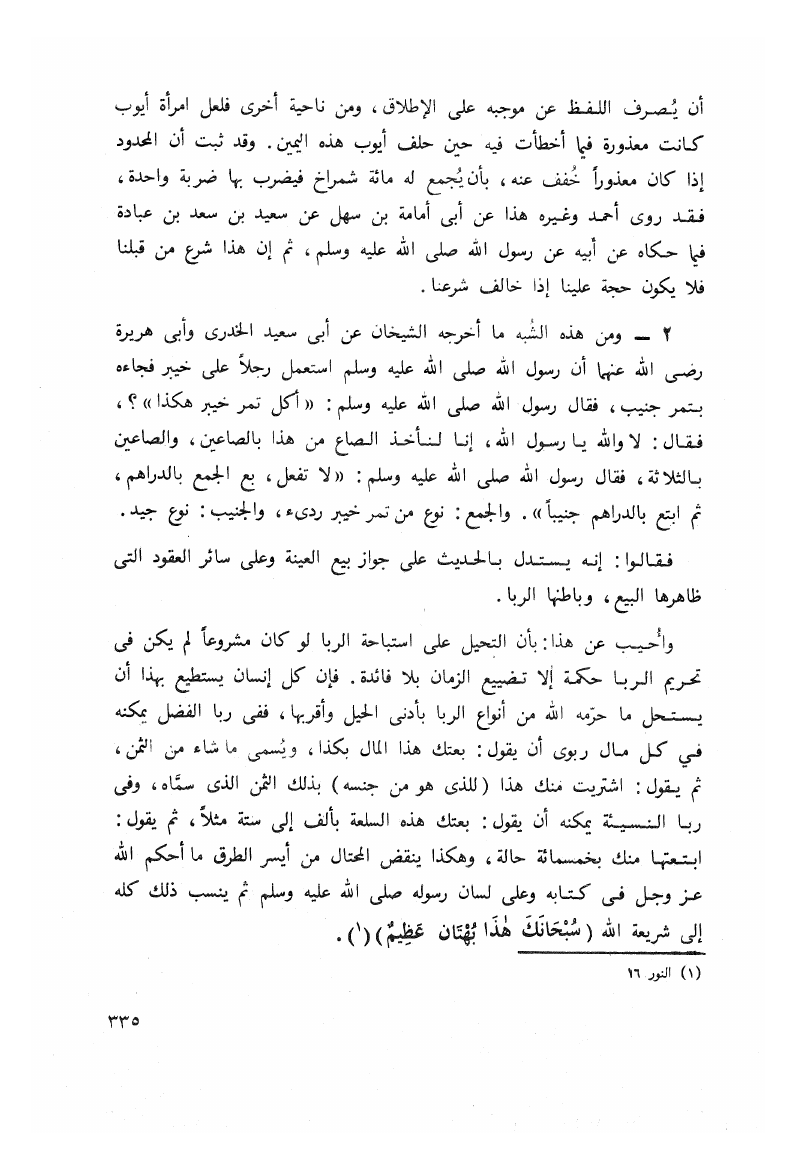 أن يُصرف اللفظ عن موجبه على الإطلاق، ومن ناحية أخرى فلعل امرأة أيوب
كانت معذورة فيما أخطأت فيه حين حلف أيوب هذه اليمين. وقد ثبت أن المحدود
إذا كان معذوراً خُفف عنه، بأن يُجمع له مائة شمراخ فيضرب بها ضربة واحدة،
فقد روى أحمد وغيره هذا عن أبى أمامة بن سهل عن سعيد بن سعد بن عبادة
فيما حكاه عن أبيه عن رسول الله صلى الله عليه وسلم، ثم إن هذا شرع من قبلنا
فلا يكون حجة علينا إذا خالف شرعنا.
٢ ــ ومن هذه الشُبه ما أخرجه الشيخان عن أبى سعيد الخدرى وأبى هريرة
رضى الله عنهما أن رسول الله صلى الله عليه وسلم استعمل رجلاً على خيبر فجاءه
بتمر جنيب، فقال رسول الله صلى الله عليه وسلم: «أكل تمر خيبر هكذا»؟،
فقال: لا والله يا رسول الله، إنا لنأخذ الصاع من هذا بالصاعين، والصاعين
بالثلاثة، فقال رسول الله صلى الله عليه وسلم: «لا تفعل، بع الجمع بالدراهم،
ثم ابتع بالدراهم جنيباً». والجمع: نوع من تمر خيبر ردىء، والجنيب: نوع جيد.
فقالوا: إنه يستدل بالحديث على جواز بيع العينة وعلى سائر العقود التى
ظاهرها البيع، وباطنها الربا.
وأُجيب عن هذا: بأن التحيل على استباحة الربا لو كان مشروعاً لم يكن فى
تحريم الربا حكمة إلا تضييع الزمان بلا فائدة. فإن كل إنسان يستطيع بهذا أن
يستحل ما حرّمه الله من أنواع الربا بأدنى الحيل وأقربها، ففى ربا الفضل يمكنه
في كل مال ربوى أن يقول: بعتك هذا المال بكذا، ويُسمى ما شاء من الثمن،
ثم يقول: اشتريت منك هذا (للذى هو من جنسه) بذلك الثمن الذى سمَّاه، وفى
ربا النسيئة يمكنه أن يقول: بعتك هذه السلعة بألف إلى ستة مثلاً، ثم يقول:
ابتعتها منك بخمسمائة حالة، وهكذا ينقض المحتال من أيسر الطرق ما أحكم الله
عز وجل فى كتابه وعلى لسان رسوله صلى الله عليه وسلم ثم ينسب ذلك كله
إلى شريعة الله (سُبْحَانَكَ هَٰذَا بُهْتَان عَظِيمٌ)(١).
(١) النور ١٦
٣٣٥